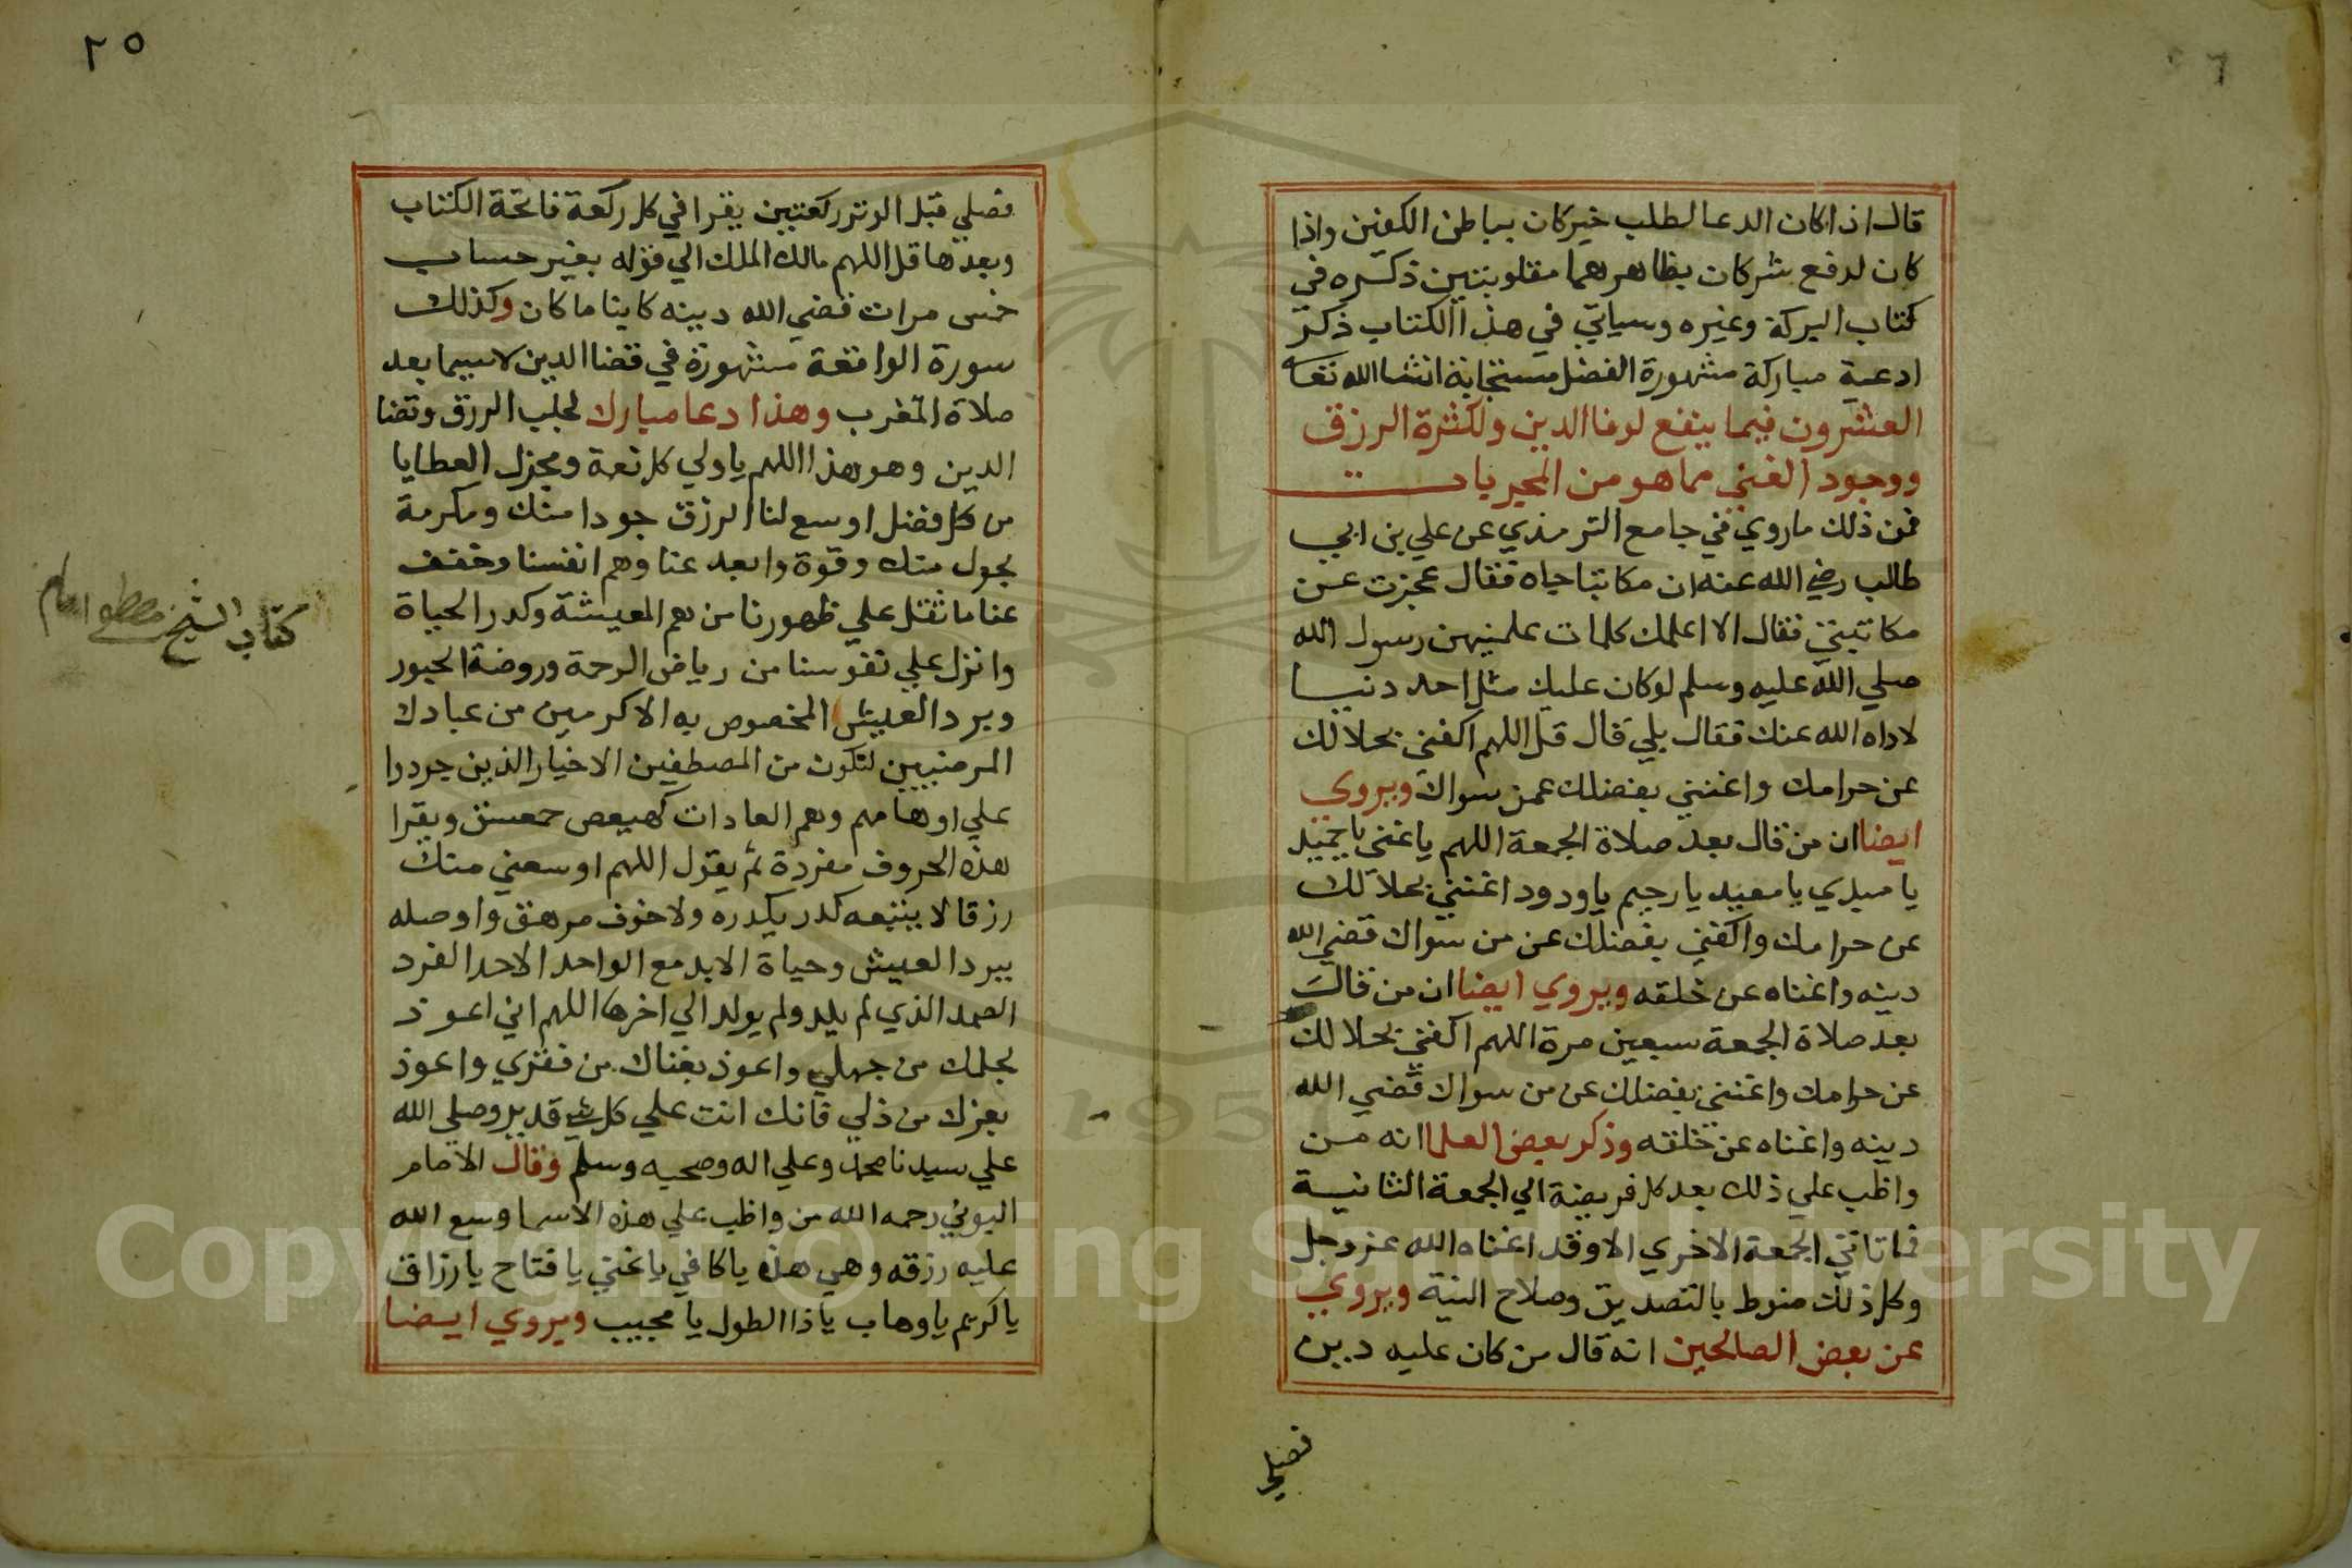 قال اذا كان الدعا لطلب خير كان بباطن الكفين واذا
كان لدفع شر كان بظاهرهما مقلوبتين ذكره في
كتاب البركة وغيره وسياتي في هذا الكتاب ذكر
ادعية مباركة مشهورة الفضل مستجابة انشا الله تعا
العشرون فيما ينفع لوفا الدين ولكثرة الرزق
ووجود الغني مما هو من المجربات
فمن ذلك ماروي في جامع الترمذي عن علي بن ابي
طالب رضي الله عنه ان مكاتبا جاه فقال عجزت عن
مكاتبتي فقال الا اعلمك كلمات علمنيهن رسول الله
صلي الله عليه وسلم لوكان عليك مثل احد دنيا
لاداه الله عنك فقال بلي قال قل اللهم اكفني بحلالك
عن حرامك واغنني بفضلك عمن سواك ويروي
ايضا ان من قال بعد صلاة الجمعة اللهم ياغني ياحميد
يا مبدي يا معيد يا رحيم ياودود اغنني بحلالك
عن حرامك واكفني بفضلك عن من سواك قضي الله
دينه واغناه عن خلقه ويروي ايضا ان من قال
بعد صلاة الجمعة سبعين مرة اللهم اكفني بحلالك
عن حرامك واغنني بفضلك عن من سواك قضي الله
دينه واغناه عن خلقه وذكر بعض العلما انه من
واظب علي ذلك بعد كل فريضة الي الجمعة الثانية
فما تاتي الجمعة الاخري الا وقد اغناه الله عزوجل
وكل ذلك منوط بالتصديق وصلاح النية ويروي
عن بعض الصالحين انه قال من كان عليه دين
فصلي
٢٥
فصلي قبل الوتر ركعتين يقرا في كل ركعة فاتحة الكتاب
وبعدها قل اللهم مالك الملك الي قوله بغير حساب
خمس مرات قضي الله دينه كاينا ما كان وكذلك
سورة الواقعة مشهورة في قضا الدين لاسيما بعد
صلاة المغرب وهذا دعا مبارك لجلب الرزق وقضا
الدين وهو هذا اللهم ياولي كل نعة ومجزل العطايا
من كل فضل اوسع لنا الرزق جودا منك ومكرمة
بحول منك وقوة وابعد عنا وهم انفسنا وخفف
عنا ما ثقل علي ظهورنا من هم المعيشة وكدر الحياة
وانزل علي نفوسنا من رياض الرحمة وروضة الحبور
وبرد العيش المخصوص به الاكرمين من عبادك
المرضيين لنكون من المصطفين الاخيار الذين جردوا
علي اوهامهم وهم العادات كهيعص حمعسق ويقرا
هذه الحروف مفردة ثم يقول اللهم اوسعني منك
رزقا لا يتبعه كدر يكدره ولا خوف مرهق واوصله
ببرد العيش وحياة الابد مع الواحد الاحد الفرد
الصمد الذي لم يلد ولم يولد الي اخرها اللهم اني اعوذ
بحلمك من جهلي واعوذ بغناك من فقري واعوذ
بعزك من ذلي فانك انت علي كل شي قدير وصلي الله
علي سيدنا محمد وعلي اله وصحبه وسلم وقال الامام
البوني رحمه الله من واظب علي هذه الاسما وسع الله
عليه رزقه وهي هذه ياكافي ياغني يا فتاح يا رزاق
ياكريم ياوهاب ياذا الطول يا مجيب ويروي ايضا
كتاب الشيخ مصطفى امام
Copyright © King Saud University
195